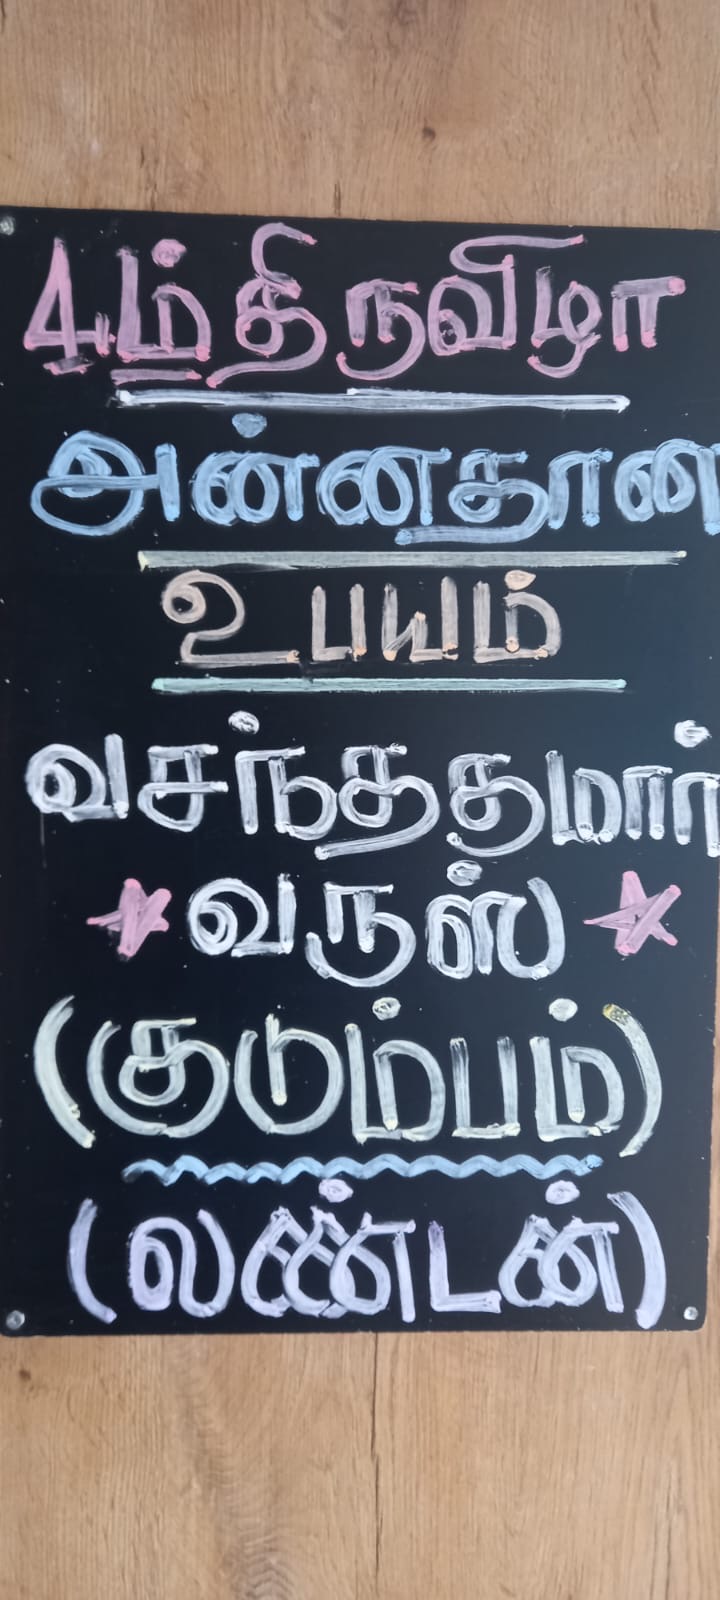 4ம் திருவிழா
அன்னதான
உபயம்
வசந்ததமார்
வருஸ்
(குடும்பம்)
(லண்டன்)